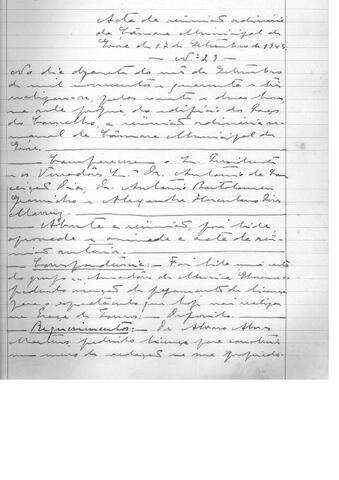 Acta da reunião ordinária
da Câmara Municipal de
de 17 de Setembro de 1943
— N.º 29 —
No dia dezassete do mês de Setembro
de mil novecentos e quarenta e três
realizou-se, pelas vinte e duas horas,
na sala própria do edifício dos Paços
do Concelho, a reunião ordinária
da Câmara Municipal de
Compareceram o Ex. Presidente
e os Vereadores Ex. Dr. António da Con-
ceição Dias, Dr. António Bartolomeu
e Alexandre Herculano Dias
Aberta a reunião, foi lida
aprovada e assinada a acta da reu-
nião anterior.
Correspondência: Foi lida uma carta
do grupo de Amadores de Musica
pedindo isenção do pagamento de licença
para o espectáculo que hoje vai realizar
na Praça de Touros: — Deferido.
Requerimentos: — De Alvaro Alves
Martins pedindo licença para construir
muro de vedação na sua proprieda-